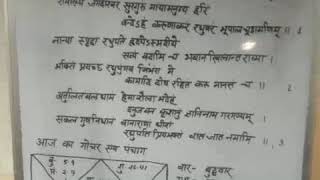 रामाख्यं जगदीश्वरं सुरगुरुं मायामनुष्यं हरिं
वन्देऽहं करुणाकरं रघुवरं भूपालचूड़ामणिम् । 1
नान्या स्पृहा रघुपते हृदयेऽस्मदीये
सत्यं वदामि च भवानखिलान्तरात्मा ।
भक्तिं प्रयच्छ रघुपुंगव निर्भरां मे
कामादि दोष रहितं कुरु मानसं च । 2
अतुलितबलधामं हेमशैलाभदेहं
दनुजवन कृशानुं ज्ञानिनाम गरगण्यम् ।
सकल गुणनिधानं वानराणामधीशं
रघुपति प्रियभक्तं वात जातं नमामि । 3
आज का गोचर एवं पंचांग
वार- बुधवार